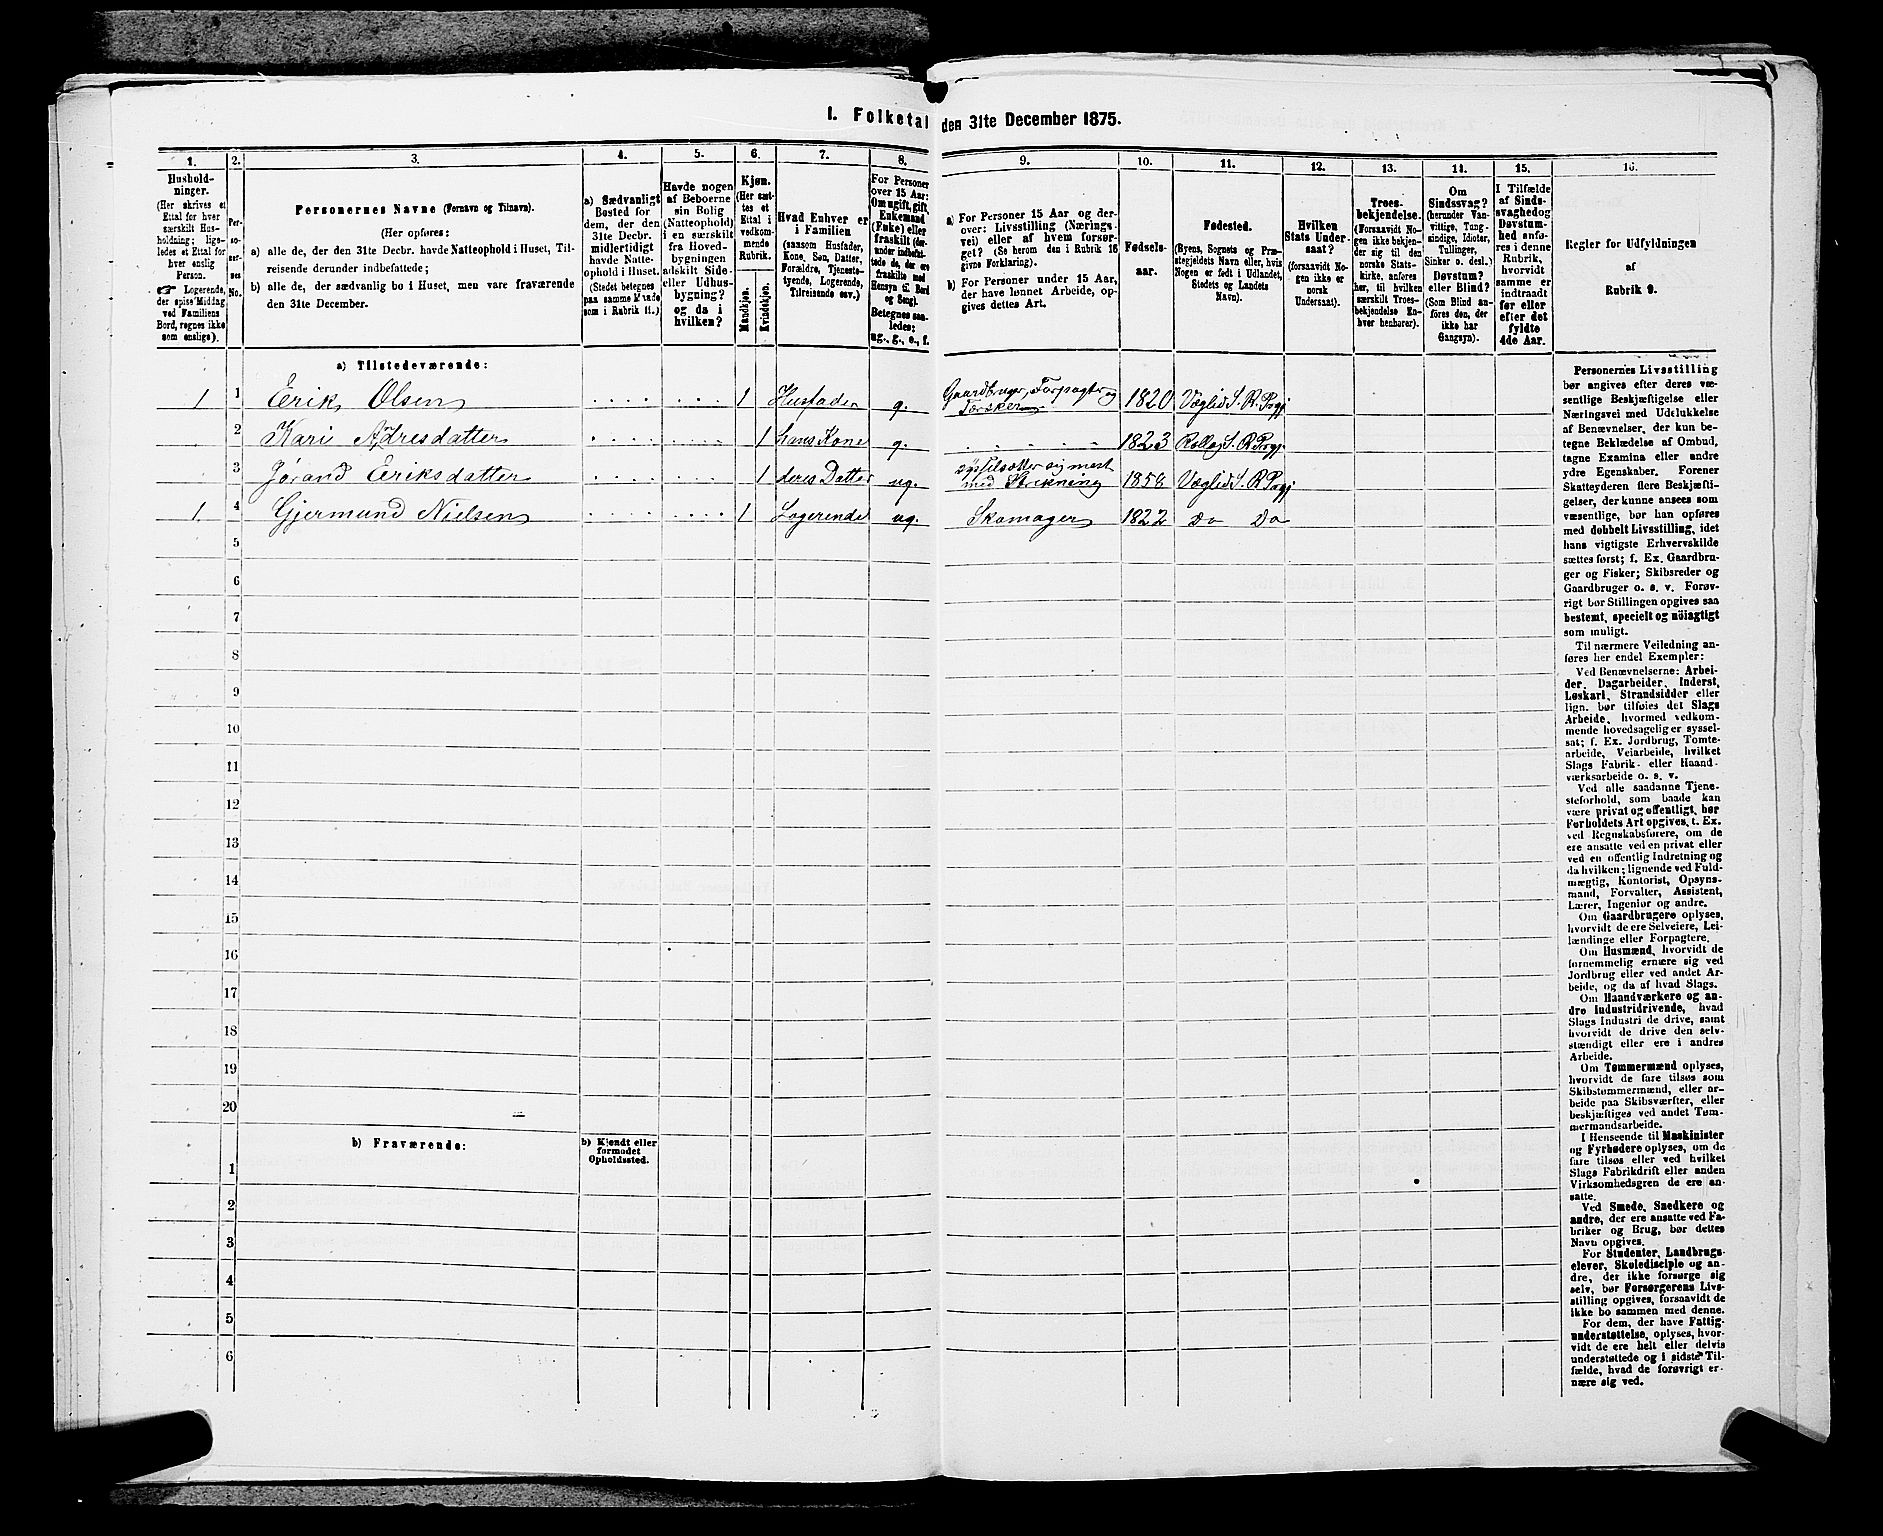 I. Folketal den 31te December 1875.
1. 2. 3. 4. 5. 6. 7. 8. 9. 10. 11. 12. 13. 14. 15. 16.
Hushold-
ninger.
(Her skrives et
Ettal for hver
særskilt Hus-
holdning; lige-
ledes et Ettal for
hver enslig
Person.
☛ Logerende,
der spise Middag
ved Familiens
Bord, regnes ikke
som enslige).
Per-
so-
ner-
nes
No.
Personernes Navne (Fornavn og Tilnavn).
(Her opføres:
a) alle de, der den 31te Decbr. havde Natteophold i Huset, Til-
reisende derunder indbefattede;
b) alle de, der sædvanlig bo i Huset, men vare fraværende
den 31te December.
a) Sædvanligt
Bosted for
dem, der den
31te Decbr.
midlertidigt
havde Natte-
ophold i Huset.
(Stedet betegnes
paa samme Maade
som i Rubrik 11.)
Havde nogen
af Beboerne
sin Bolig
(Natteophold)
i en særskilt
fra Hoved-
bygningen
adskilt Side-
eller Udhus-
bygning? og da i
hvilken?
Kjøn.
(Her sæt-
tes et
Ettal i
vedkom-
mende
Rubrik.
Mandkjøn.
Kvindekjøn.
Hvad Enhver er
i Familien
(saasom Husfader,
Kone, Søn, Datter,
Forældre, Tjeneste-
tyende, Logerende,
Tilreisende osv.)
For Personer
over 15 Aar:
Om ugift, gift,
Enkemand
(Enke) eller
fraskilt (der-
under indbefat-
tede de, der ere
fraskilte med
Hensyn til Bord
og Seng).
Betegnes saa-
ledes:
ug., g., e., f.
a) For Personer 15 Aar og der-
over: Livsstilling (Nærings-
vei) eller af hvem forsør-
get? (Se herom den i Rubrik 16
givne Forklaring).
b) For Personer under 15 Aar,
der have lønnet Arbeide, op-
gives dettes Art.
Fødsels-
aar.
Fødested.
(Byens, Sognets og Præ-
stegjeldets Navn eller, hvis
Nogen er født i Udlandet,
Stedets og Landets
Navn).
Hvilken
Stats Under-
saat?
(forsaavidt No-
gen ikke er
norsk
Undersaat).
Troes-
bekjendelse.
(Forsaavidt No-
gen ikke bekjen-
der sig til den
norske Stats-
kirke, anføres
her, til hvilken
særskilt Troes-
bekjendelse En-
hver henhører).
Om
Sindssvag?
(herunder Van-
vittige, Tung-
sindige, Idioter,
Tullinger,
Sinker o. desl.)
Døvstum?
eller Blind?
(Som Blind an-
føres den, der
ikke har
Gangsyn).
I Tilfælde
af Sinds-
svaghed og
Døvstum-
hed anfø-
res i denne
Rubrik,
hvorvidt
samme er
indtraadt
før eller
efter det
fyldte
4de Aar.
Regler for Udfyldningen
af
Rubrik 9.
a) Tilstedeværende:
1 1 Erik Olsen 1 Husfader g. Gaardbruger, Forpagter og 1820 Væglid S. R. Prgj
2 Kari Adresdatter 1 hans Kone g. 1823 Rollag S. R Prgj.
3 Jørand Eriksdatter 1 deres Datter ug. sysselsætter sig mest med Strikning 1858 Væglid S. R Prgj
1 4 Gjermund Nielsen 1 Logerende ug. Skomager 1822 Do Do
5
6
7
8
9
10
11
12
13
14
15
16
17
18
19
20
b) Fraværende:
b) Kjendt eller
formodet
Opholdssted.
1
2
3
4
5
6
Personernes Livsstilling
bør angives efter deres væ-
sentlige Beskjæftigelse eller
Næringsvei med Udelukkelse
af Benævnelser, der kun be-
tegne Beklædelse af Ombud,
tagne Examina eller andre
ydre Egenskaber. Forener
Skatteyderen flere Beskjæfti-
gelser, der kunne ansees som
væsentlige, bør han opføres
med dobbelt Livsstilling, idet
hans vigtigste Erhvervskilde
sættes først; f. Ex. Gaardbru-
ger og Fisker; Skibsreder og
Gaardbruger o. s. v. Forøv-
rigt bør Stillingen opgives saa
bestemt, specielt og nöiagtigt
som muligt.
Til nærmere Veiledning an-
føres her endel Exempler:
Ved Benævnelserne: Arbei-
der, Dagarbeider, Inderst,
Løskarl, Strandsidder eller
lign. bør tilføies det Slags
Arbeide, hvormed vedkom-
mende hovedsagelig er syssel-
sat; f. Ex. Jordbrug, Tomte-
arbeide, Veiarbeide, hvilket
Slags Fabrik- eller Haand-
værksarbeide o. s. v.
Ved alle saadanne Tjene-
steforhold, som baade kan
være privat og offentligt, bør
Forholdets Art opgives, t. Ex.
ved Regnskabsførere, om de
ere ansatte ved en privat eller
ved en offentlig Indretning og
da hvilken; lignende ved Fuld-
mægtig, Kontorist, Opsyns-
mand, Forvalter, Assistent,
Lærer, Ingeniør og andre.
Om Gaardbrugere oplyses,
hvorvidt de ere Selveiere, Lei-
lændinge eller Forpagtere.
Om Husmænd, hvorvidt de
fornemmelig ernære sig ved
Jordbrug eller ved andet Ar-
beide, og da af hvad Slags.
Om Haandværkere og an-
dre Industridrivende, hvad
Slags Industri de drive, samt
hvorvidt de drive den selv-
stændigt eller ere i andres
Arbeide.
Om Tømmermænd oplyses,
hvorvidt de fare tilsøs som
Skibstømmermænd, eller ar-
beide paa Skibsværfter, eller
beskjæftiges ved andet Tøm-
mermandsarbeide.
I Henseende til Maskinister
og Fyrbødere oplyses, om de
fare tilsøs eller ved hvilket
Slags Fabrikdrift eller anden
Virksomhedsgren de ere an-
satte.
Ved Smede, Snedkere og
andre, der ere ansatte ved Fa-
briker og Brug, bør dettes
Navn opgives.
For Studenter, Landbrugs-
elever, Skoledisciple og an-
dre, der ikke forsørge sig
selv, bør Forsørgerens Livs-
stilling opgives, forsaavidt de
ikke bo sammen med denne.
For dem, der have Fattig-
understøttelse, oplyses, hvor-
vidt de ere helt eller delvis
understøttede og i sidste Til-
fælde, hvad de forøvrigt er-
nære sig ved.